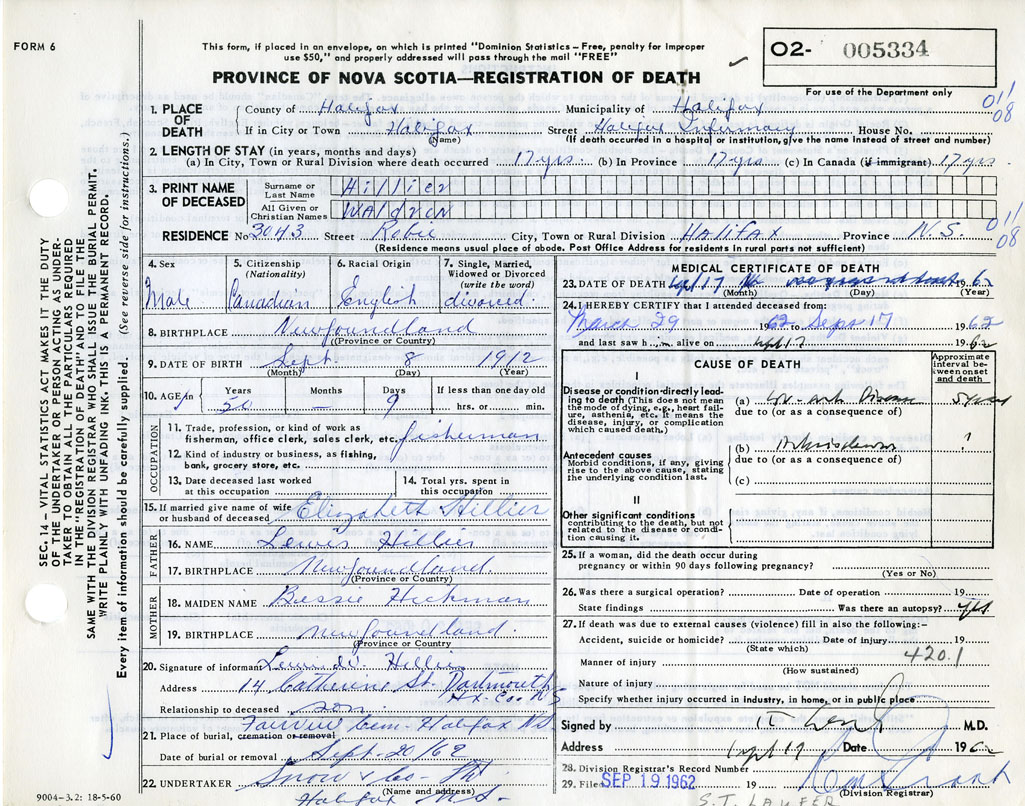 FORM 6
This form, if placed in an envelope, on which is printed "Dominion Statistics – Free, penalty for improper
use $50," and properly addressed will pass through the mail "FREE"
PROVINCE OF NOVA SCOTIA—REGISTRATION OF DEATH
O2- 005334
For use of the Department only
011
08
1. PLACE OF DEATH
County of Halifax Municipality of Halifax
If in City or Town Halifax Street Halifax Infirmary House No.
(Name) (If death occurred in a hospital or institution, give the name instead of street and number)
2. LENGTH OF STAY (in years, months and days)
(a) In City, Town or Rural Division where death occurred 17 yrs. (b) In Province 17 yrs. (c) In Canada (if immigrant) 17 yrs.
3. PRINT NAME OF DECEASED
Surname or Last Name Hillier
All Given or Christian Names Waldron
RESIDENCE No 3043 Street Robie City, Town or Rural Division Halifax Province N.S.
(Residence means usual place of abode. Post Office Address for residents in rural parts not sufficient)
011
08
4. Sex Male
5. Citizenship (Nationality) Canadian
6. Racial Origin English
7. Single, Married, Widowed or Divorced (write the word) divorced
8. BIRTHPLACE Newfoundland
(Province or Country)
9. DATE OF BIRTH Sept. 8 1912
(Month) (Day) (Year)
10. AGE in Years 50 Months – Days 9 If less than one day old hrs. or min.
OCCUPATION
11. Trade, profession, or kind of work as fisherman, office clerk, sales clerk, etc. fisherman
12. Kind of industry or business, as fishing, bank, grocery store, etc.
13. Date deceased last worked at this occupation
14. Total yrs. spent in this occupation
15. If married give name of wife or husband of deceased Elizabeth Hillier
FATHER
16. NAME Lewis Hillier
17. BIRTHPLACE Newfoundland.
(Province or Country)
MOTHER
18. MAIDEN NAME Bessie Hickman
19. BIRTHPLACE Newfoundland.
(Province or Country)
20. Signature of informant Lewis W. Hillier
Address 14 Catherine St. Dartmouth
Hx. Co. N S
Relationship to deceased son
Fairview Cem. Halifax NS
21. Place of burial, cremation or removal
Date of burial or removal Sept. 20/62
22. UNDERTAKER Snow & Co
(Name and address)
Halifax N.S.
9004—3.2: 18-5-60
MEDICAL CERTIFICATE OF DEATH
23. DATE OF DEATH Sept 17 1962
(Month) (Day) (Year)
24. I HEREBY CERTIFY that I attended deceased from:
March 29 1962 to Sept 17 1962
and last saw h im alive on Sept 17 1962
CAUSE OF DEATH
Approximate interval between onset and death
I
Disease or condition directly leading to death (This does not mean the mode of dying, e.g., heart failure, asthenia, etc. It means the disease, injury, or complication which caused death.)
(a) Disease 5 years
due to (or as a consequence of)
Antecedent causes
Morbid conditions, if any, giving rise to the above cause, stating the underlying condition last.
(b) ?
due to (or as a consequence of)
(c)
II
Other significant conditions
contributing to the death, but not related to the disease or condition causing it.
25. If a woman, did the death occur during pregnancy or within 90 days following pregnancy?
(Yes or No)
26. Was there a surgical operation? Date of operation 19
State findings Was there an autopsy? yes
27. If death was due to external causes (violence) fill in also the following:-
Accident, suicide or homicide? Date of injury 19
(State which)
420.1
Manner of injury
(How sustained)
Nature of injury
Specify whether injury occurred in industry, in home, or in public place
Signed by M.D.
Address Date Sept 17 1962
28. Division Registrar's Record Number
29. Filed SEP 19 1962
(Division Registrar)
S.T. LAUFER
SEC. 14 – VITAL STATISTICS ACT MAKES IT THE DUTY
OF THE UNDERTAKER OR PERSON ACTING AS UNDER-
TAKER TO OBTAIN ALL THE PARTICULARS REQUIRED
IN THE "REGISTRATION OF DEATH" AND TO FILE THE
SAME WITH THE DIVISION REGISTRAR WHO SHALL ISSUE THE BURIAL PERMIT.
WRITE PLAINLY WITH UNFADING INK. THIS IS A PERMANENT RECORD.
Every item of information should be carefully supplied. (See reverse side for instructions.)